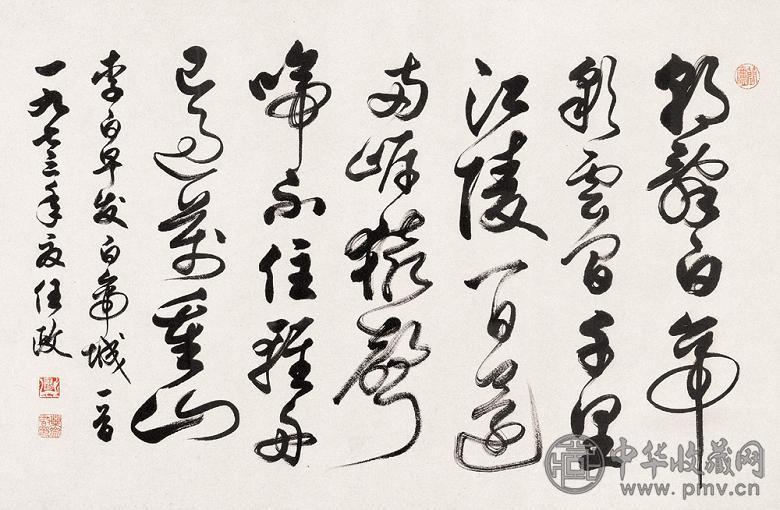 朝辭白帝
彩雲間千里
江陵一日還
兩岸猿聲
啼不住輕舟
已過萬重山
李白早发白帝城一首
一九七三年夏任政
中华收藏网
www.pmv.cn